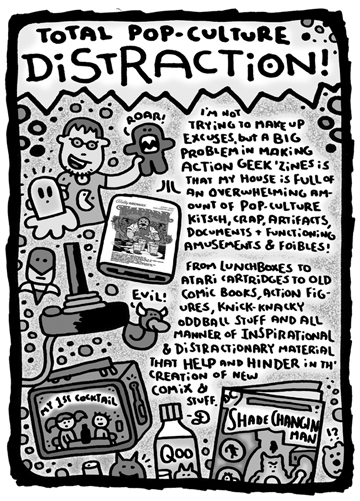 TOTAL POP-CULTURE
DiSTRACTiON!
ROAR!
I'M NOT
TRYING TO MAKE UP
EXCUSES, BUT A BIG
PROBLEM IN MAKING
ACTION GEEK 'ZINES IS
THAT MY HOUSE IS FULL OF
AN OVERWHELMING AM-
OUNT OF POP-CULTURE
KITSCH, CRAP, ARTIFACTS,
DOCUMENTS + FUNCTIONING
AMUSEMENTS & FOIBLES!
EVIL!
FROM LUNCHBOXES TO
ATARI CARTRIDGES TO OLD
COMIC BOOKS, ACTION FIG-
URES, KNICK-KNACKY
ODDBALL STUFF AND ALL
MANNER OF INSPIRATIONAL
& DISTRACTIONARY MATERIAL
THAT HELP AND HINDER IN TH'
CREATION OF NEW
COMIX &
STUFF.
MY 1ST COCKTAIL
QOO
SHADE CHANGIN
MAN
!?